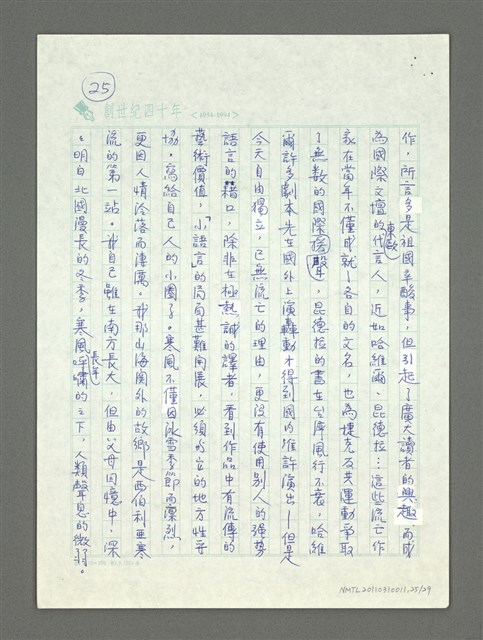 25
創世紀四十年 <1954-1994>
作，所言多是祖國辛酸事，但引起了廣大讀者的興趣，而成
為國際文壇的代言人，近如哈維爾、昆德拉…這些流亡作
東歐
家在當年不僅成就了各自的文名，也為捷克反共運動爭取
了無数的國際援聲，昆德拉的書在台灣風行不衰，哈維
爾許多劇本先在國外上演轟動才得到國內准許演出—但是
今天自由獨立，已無流亡的理由，更沒有使用別人的強势
語言的藉口，除非在極熱誠的譯者，看到作品中有流傳的
藝術價值，「小語言」的局面甚難開展，必須向立的地方性妥
協。寫給自己人的小圈子。寒風不僅因冰雪季節而凜烈，
更因人情冷落而淒厲。我那山海関外的故鄉是西伯利亜寒
流的第一站。我自己雖在南方長大，但由父母回憶中，深
知明白北國漫長的冬季，寒風呼嘯的之下，人類聲息的微弱。
長年
NMTL20110310011,25/29